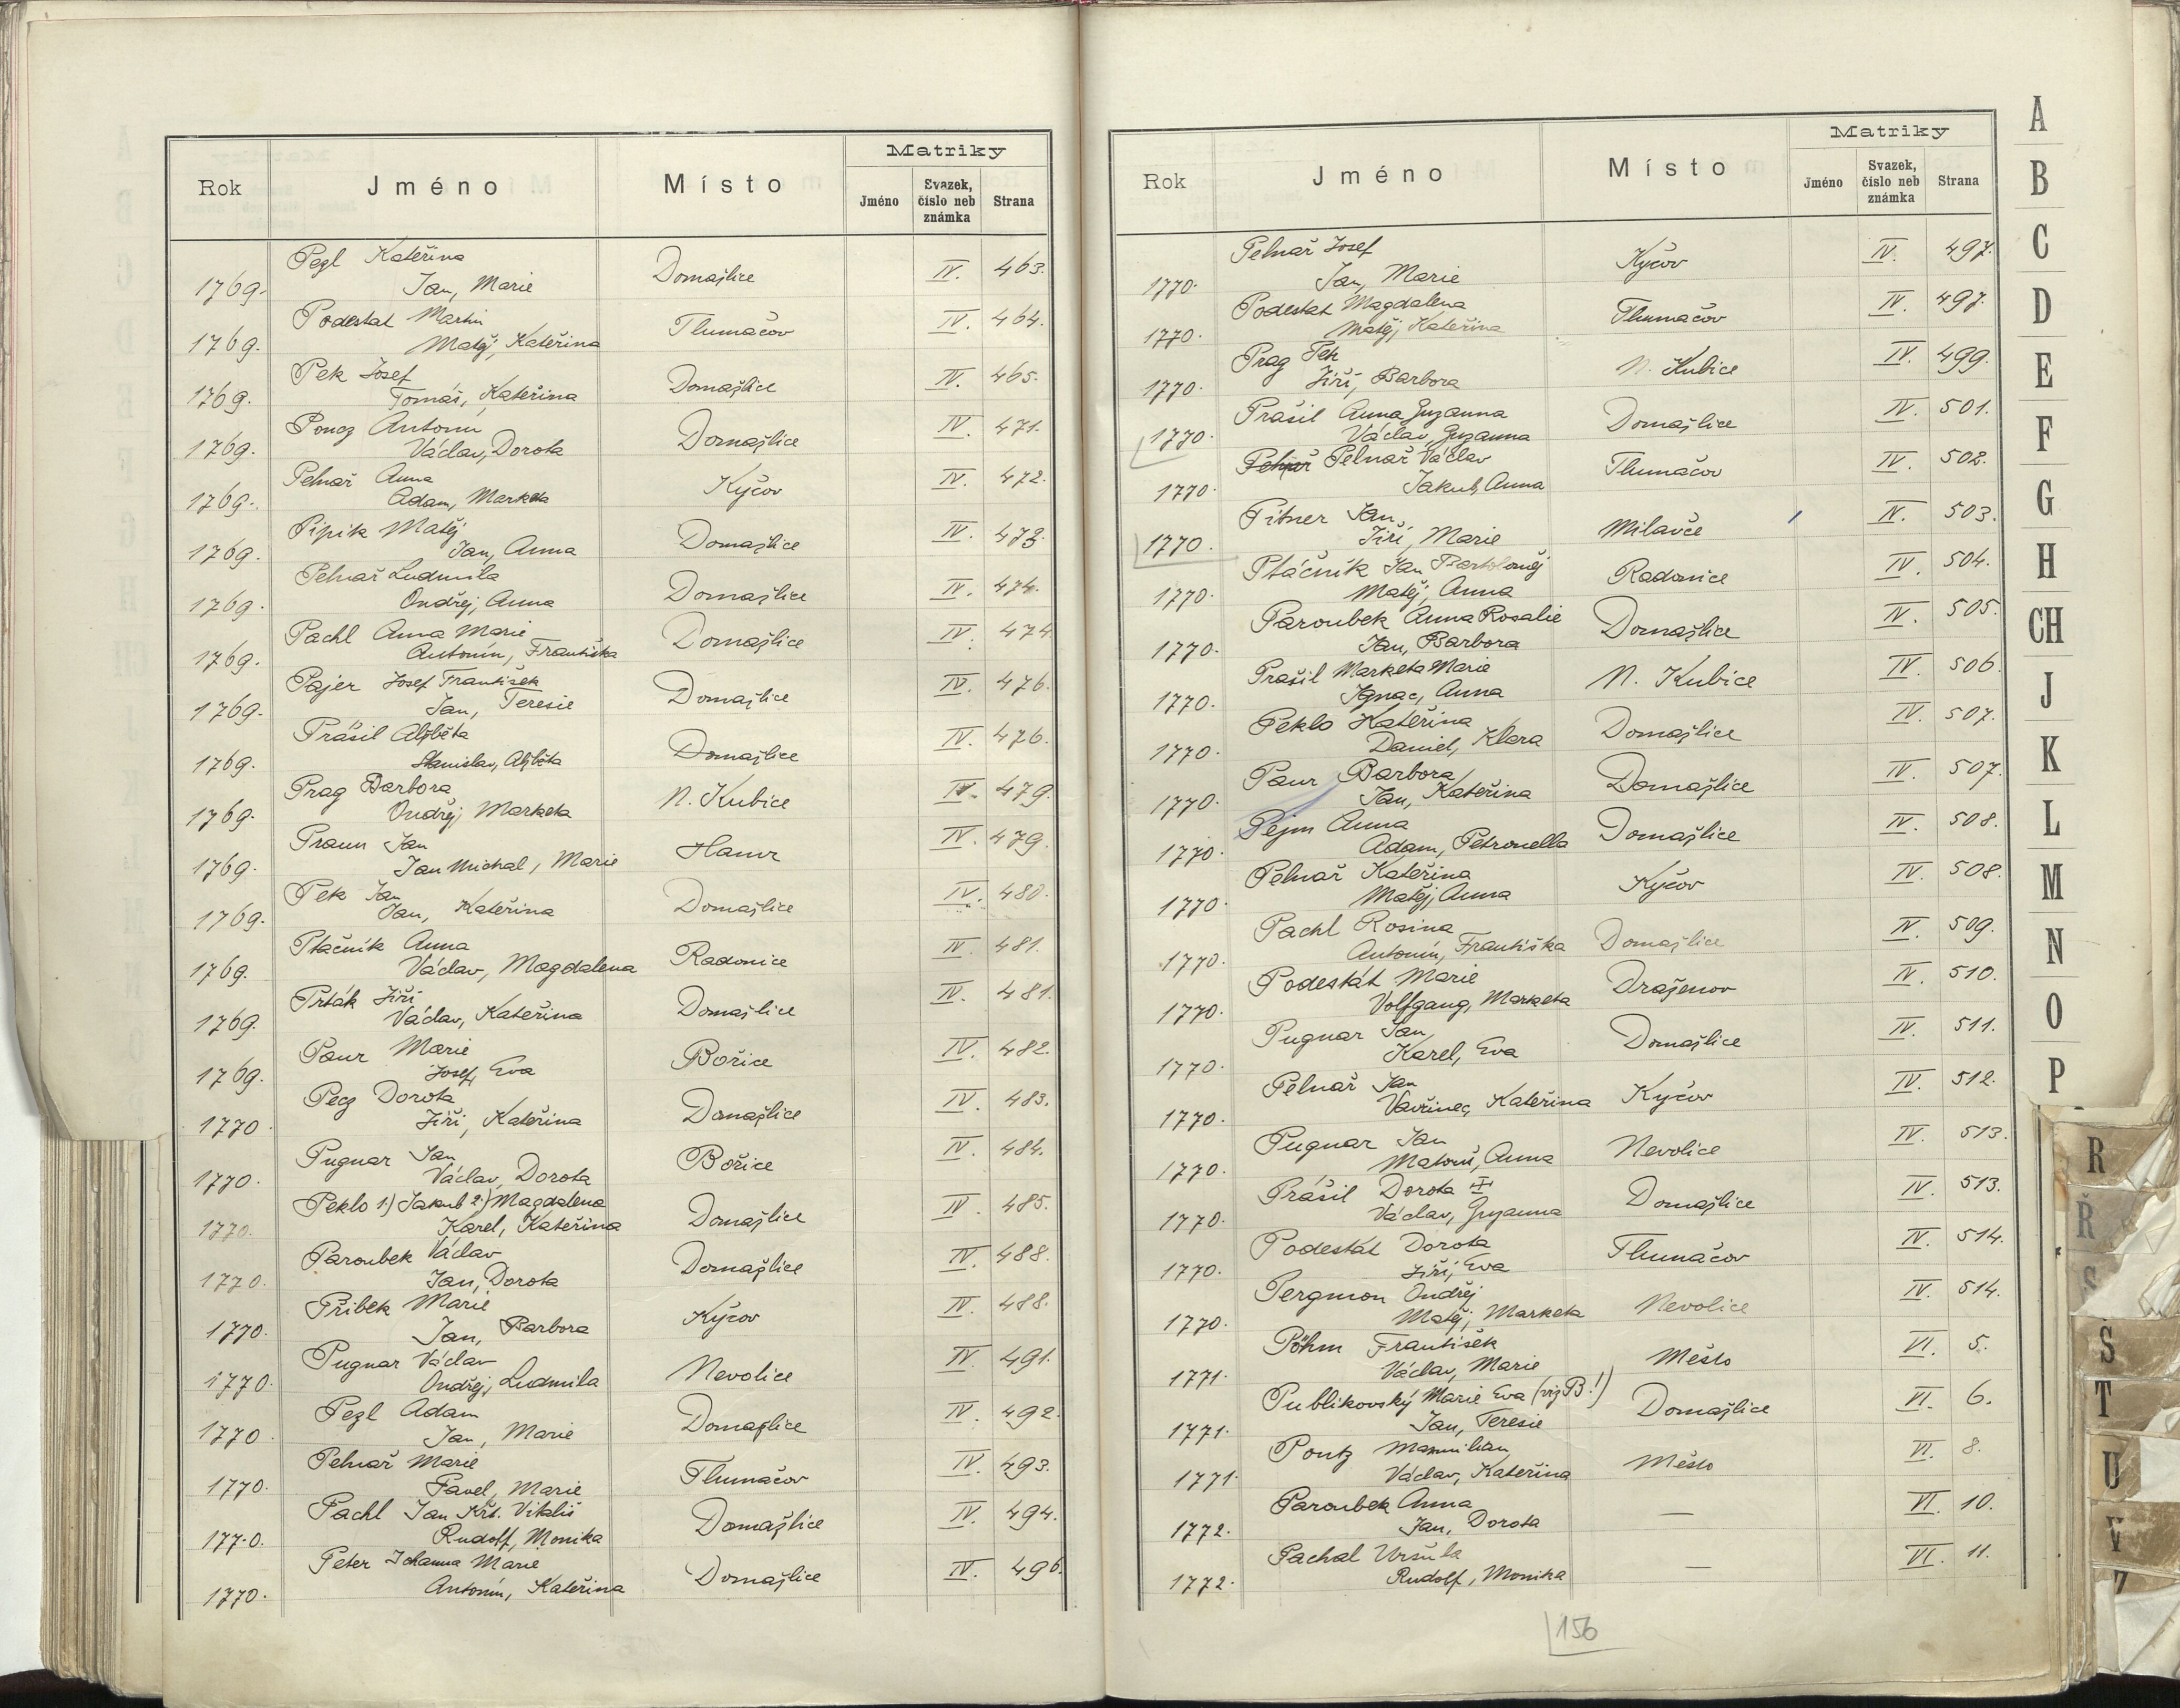 Matriky
Rok Jméno Místo Jméno Svazek, číslo neb známka Strana
Pegl Kateřina
1769. Jan, Marie Domažlice IV. 463.
Podestat Martin
1769. Matěj, Kateřina Tlumačov IV. 464.
Pek Josef
1769. Tomáš, Kateřina Domažlice IV. 465.
Poncz Antonín
1769. Václav, Dorota Domažlice IV. 471.
Pelnař Anna
1769. Adam, Marketa Kýčov IV. 472.
Pipik Matěj
1769. Jan, Anna Domažlice IV. 473.
Pelnař Ludmila
1769. Ondřej, Anna Domažlice IV. 474.
Pachl Anna Marie
1769. Antonín, Františka Domažlice IV. 474.
Pajer Josef František
1769. Jan, Teresie Domažlice IV. 476.
Prášil Alžběta
1769. Stanislav, Alžběta Domažlice IV. 476.
Prag Barbora
1769. Ondřej, Marketa N. Kubice IV. 479.
Praun Jan
1769. Jan Michal, Marie Hamr IV. 479.
Pek Jan
1769. Jan, Kateřina Domažlice IV. 480.
Ptáčník Anna
1769. Václav, Magdalena Radonice IV. 481.
Prták Jiří
1769. Václav, Kateřina Domažlice IV. 481.
Paur Marie
1769. Josef, Eva Bořice IV. 482.
Pecz Dorota
1770 Jiří, Kateřina Domažlice IV. 483.
Pugnar Jan
1770. Václav, Dorota Bořice IV. 484.
Peklo 1.) Jakub 2.) Magdalena
1770. Karel, Kateřina Domažlice IV. 485.
Paroubek Václav
1770. Jan, Dorota Domažlice IV. 488.
Přibek Marie
1770. Jan, Barbora Kýčov IV. 488.
Pugnar Václav
1770. Ondřej, Ludmila Nevolice IV. 491.
Pezl Adam
1770. Jan, Marie Domažlice IV. 492.
Pelnař Marie
1770. Pavel, Marie Tlumačov IV. 493.
Pachl Jan Křt. Vitališ
1770. Rudolf, Monika Domažlice IV. 494.
Peter Johanna Marie
1770. Antonín, Kateřina Domažlice IV. 496.
Matriky
Rok Jméno Místo Jméno Svazek, číslo neb známka Strana
Pelnař Josef
1770. Jan, Marie Kýčov IV. 497.
Podestat Magdalena
1770. Matěj, Kateřina Tlumačov IV. 497.
Prag Petr
1770. Jiří, Barbora N. Kubice IV. 499.
Prášil Anna Zuzanna
1770. Václav, Zuzanna Domažlice IV. 501.
Pelnař Václav
1770. Jakub, Anna Tlumačov IV. 502.
Pitner Jan
1770. Jiří, Marie Milavče IV. 503.
Ptáčník Jan Bartoloměj
1770. Matěj, Anna Radonice IV. 504.
Paroubek Anna Rosalie
1770. Jan, Barbora Domažlice IV. 505.
Prašil Marketa Marie
1770. Ignac, Anna N. Kubice IV. 506.
Peklo Kateřina
1770. Daniel, Klara Domažlice IV. 507.
Paur Barbora
1770. Jan, Kateřina Domažlice IV. 507.
Pejm Anna
1770. Adam, Petronella Domažlice IV. 508.
Pelnař Kateřina
1770. Matěj, Anna Kýčov IV. 508.
Pachl Rosina
1770. Antonín, Františka Domažlice IV. 509.
Podestát Marie
1770. Volfgang, Marketa Draženov IV. 510.
Pugnar Jan
1770. Karel, Eva Domažlice IV. 511.
Pelnař Jan
1770. Vavřinec, Kateřina Kýčov IV. 512.
Pugnar Jan
1770. Matouš, Anna Nevolice IV. 513.
Prášil Dorota
1770. Václav, Zuzanna Domažlice IV. 513.
Podestát Dorota
1770. Jiří, Eva Tlumačov IV. 514.
Pergmon Ondřej
1770. Matěj, Marketa Nevolice IV. 514.
Pöhm František
1771. Václav, Marie Město VI. 5.
Publikovský Marie Eva (viz B!)
1771. Jan, Teresie Domažlice VI. 6.
Pontz Maxmilian
1771. Václav, Kateřina Město VI. 8.
Paroubek Anna
1772. Jan, Dorota — VI. 10.
Pachal Uršula
1772. Rudolf, Monika — VI. 11.
156
A
B
C
D
E
F
G
H
CH
J
K
L
M
N
O
P
R
Ř
S
Š
T
U
V